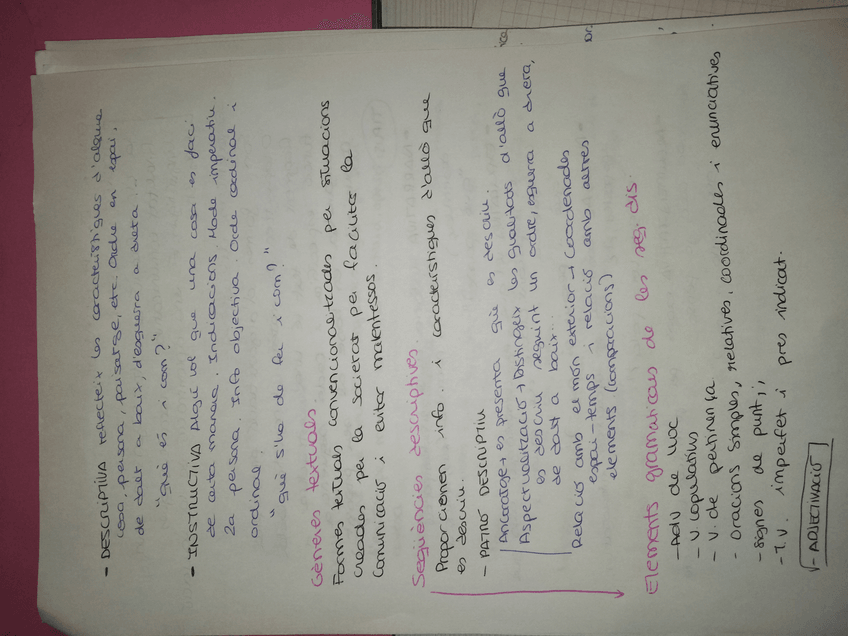 • DESCRIPTIVA reflecteix les característiques d'alguna
cosa, persona, paisatge, etc. Ordre en espai,
de dalt a baix, d'esquerra a dreta ...
"què és i com?"
• INSTRUCTIVA Algú vol que una cosa es faci
de certa manera. Indicacions, Mode imperatiu.
2a persona. Info objectiva. Orde cardinal i
ordinal.
"què s'ha de fer i com?"
Gèneres textuals.
Formes textuals convencionalitzades per situacions
creades per la societat per facilitar la
comunicació i evitar malentessos.
Seqüències descriptives.
Proporcionen info. i característiques d'allò que
es descriu.
- PATRÓ DESCRIPTIU
Ancoratge → es presenta què es descriu.
Aspectualització → Distingeix les qualitats d'allò que
es descriu seguint un ordre, esquerra a dreta,
de dalt a baix...
Relació amb el món exterior → Coordenades
espai-temps i relació amb altres
elements (comparacions)
Elements gramaticals de les seq. dis.
- Adv de lloc
- V copulatius
- V. de pertinença
- Oracions simples, relatives, coordinades i enunciatives
- Signes de punt;,
- T.V. imperfet i pres indicat.
- ADJECTIVACIÓ